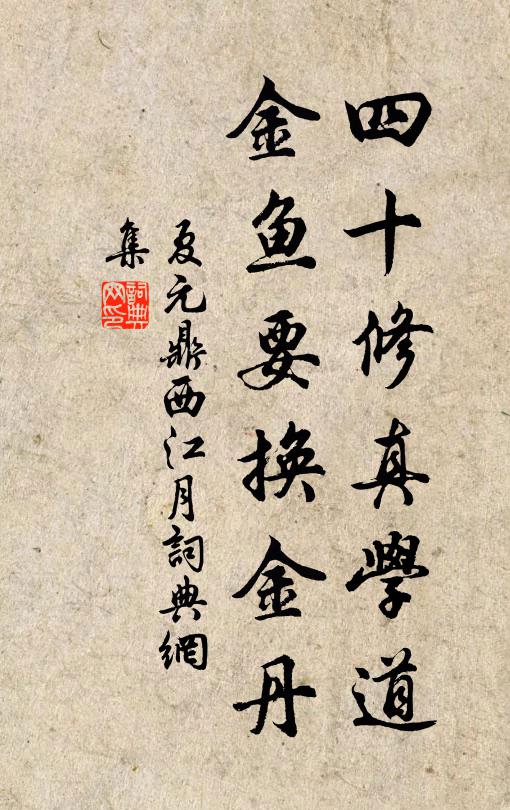 四十修真學道
金魚要換金丹
夏元鼎西江月詞典網
集
詞典
网印